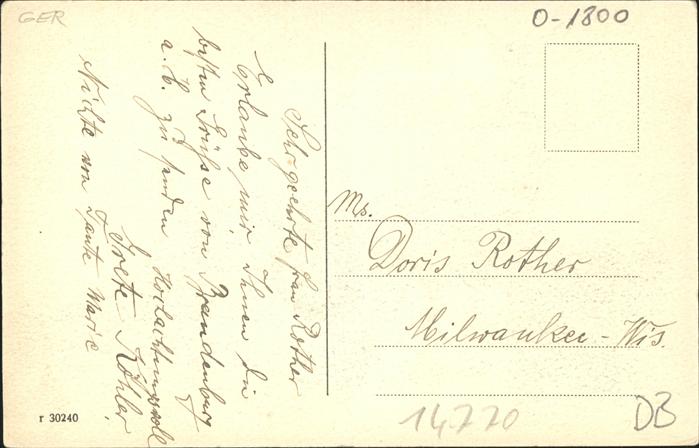 GER
O-1800
Sehr geehrte Frau Rother
Erlaube mir Ihnen die
besten Grüße von Brandenburg
a. H. zu senden Hochachtungsvoll
Grete Köhler
Nichte von Tante Marie
Ms.
Doris Rother
Milwaukee-Wis.
r 30240
14770
DB